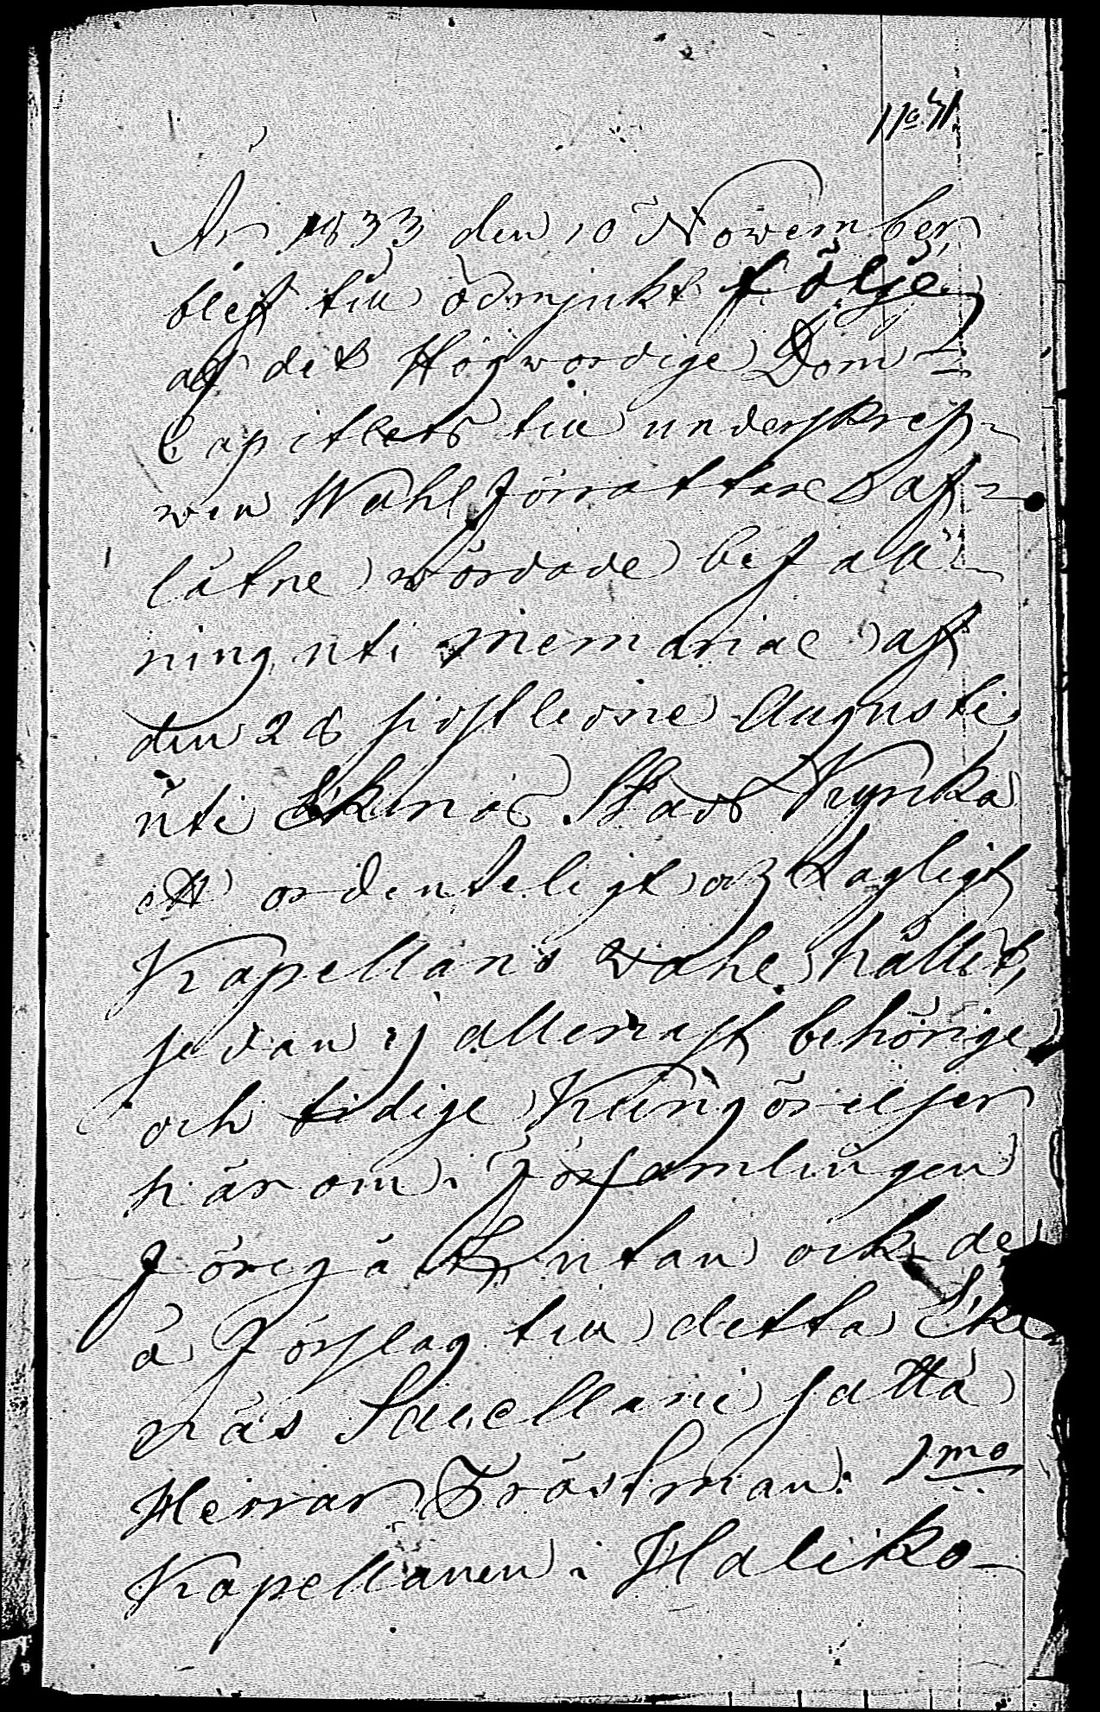 N:o 41.
År 1833 den 10 November
blef till ödmjukt följe
af det Högwördige Dom-
Capitlets till underskref-
wen Wahlförrättare af-
låtne wördade befall-
ning uti memoriae af
den 28 sidstledne Augusti,
uti Ekenäs Stads Kyrka
ett ordenteligt och lagligt
Kapellans wahl hållit,
sedan ej allenast behörige
och tidige Kungörelser
härom i Församlingen
föregått, utan ock de
å Förslag till detta Eke-
näs Sacellanie satta
Herrar Tröstman: 1mo
Kapellanen i Haliko